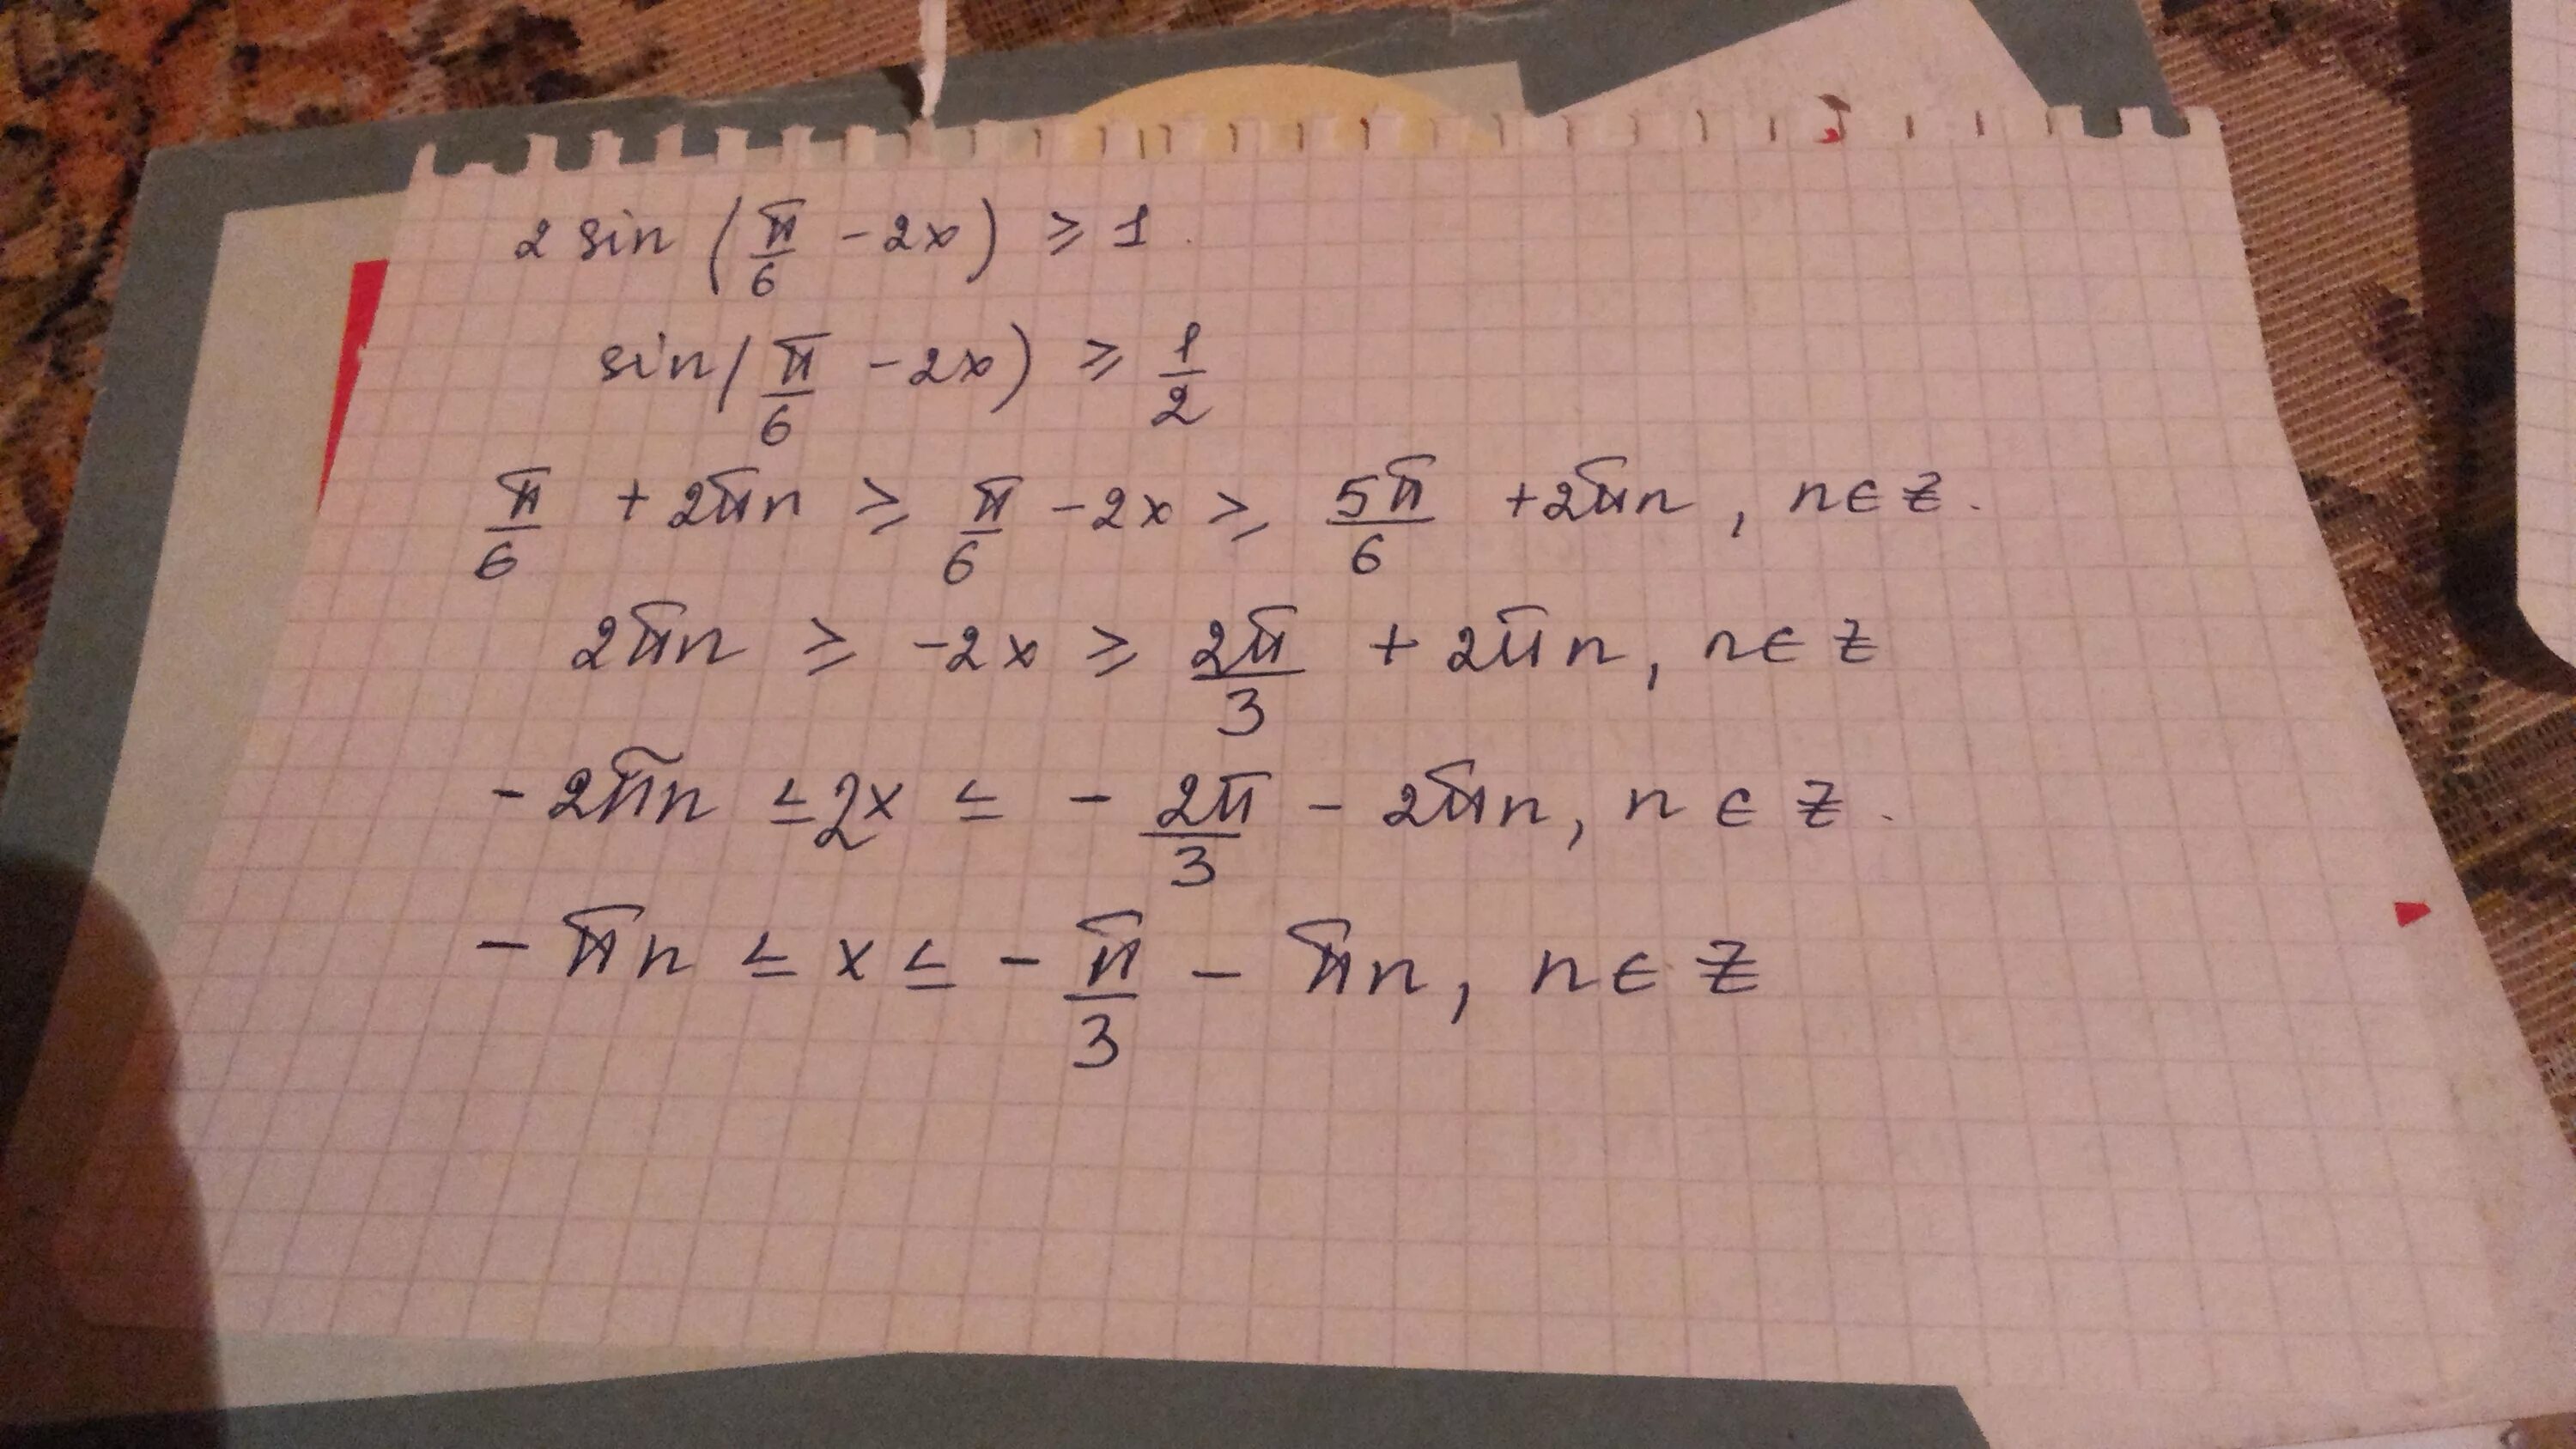 2 sin (π/6 - 2x) ≥ 1.
sin(π/6 - 2x) ≥ 1/2
π/6 + 2πn ≥ π/6 - 2x ≥ 5π/6 + 2πn, n ∈ Z.
2πn ≥ -2x ≥ 2π/3 + 2πn, n ∈ Z
- 2πn ≤ 2x ≤ - 2π/3 - 2πn, n ∈ Z.
- πn ≤ x ≤ - π/3 - πn, n ∈ Z